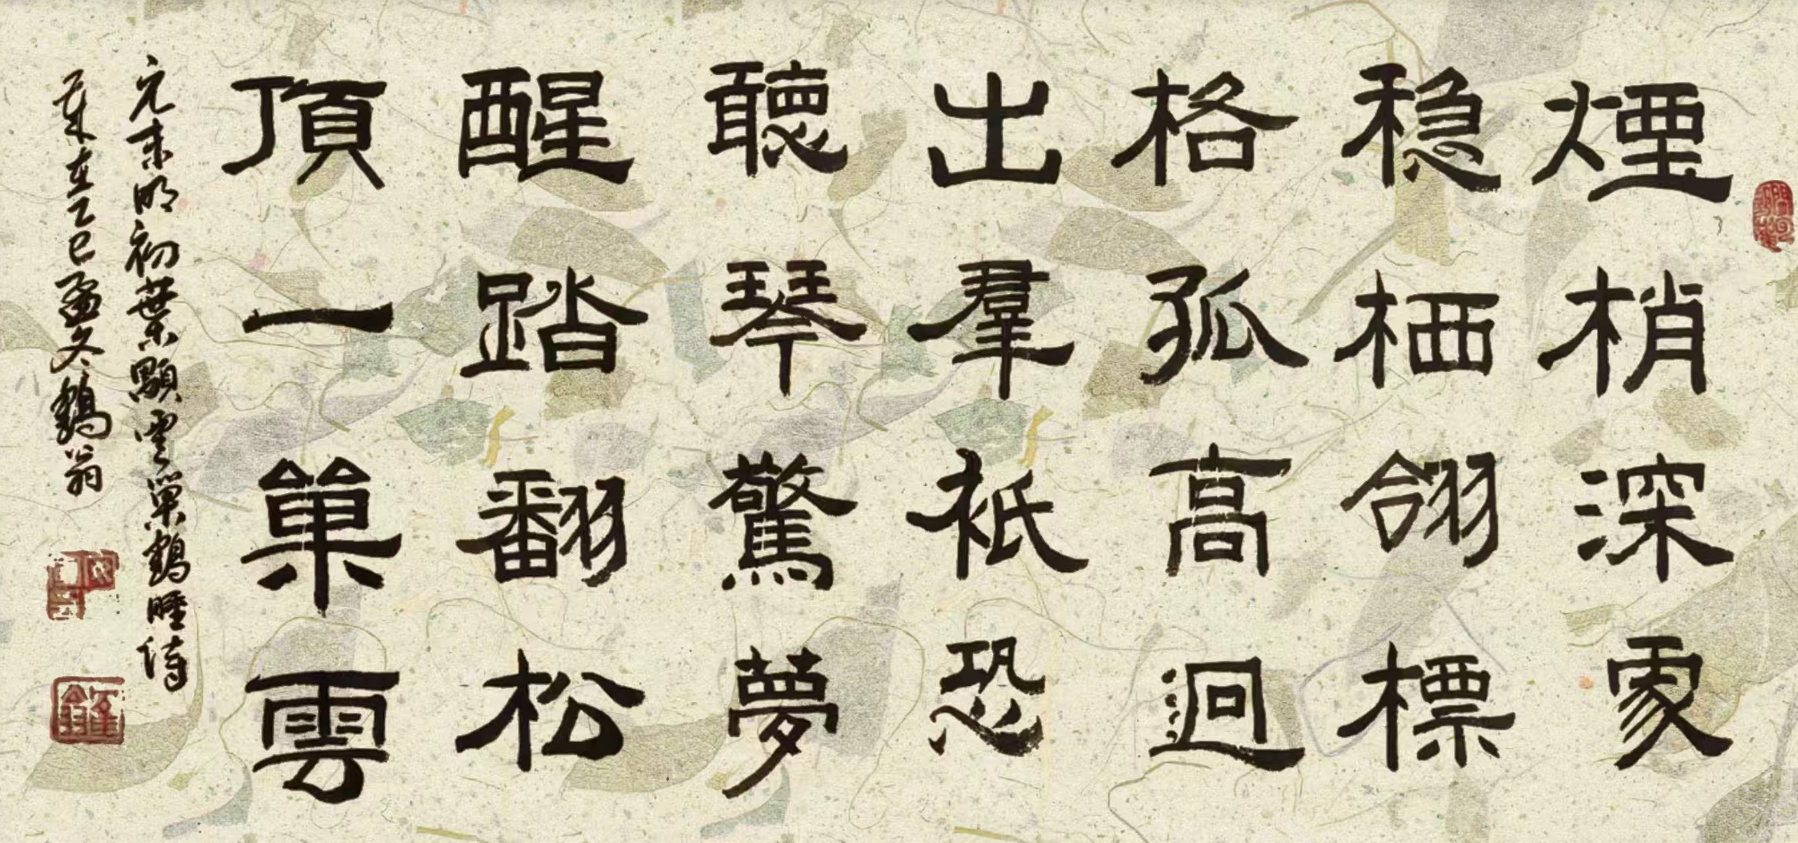 煙梢深處
稳栖翖標
格孤高迥
出羣衹恐
聽琴驚夢
醒踏翻松
頂一巢雲
元末明初葉顒雲巢鶴睡詩
歲在乙巳孟冬鶴翁